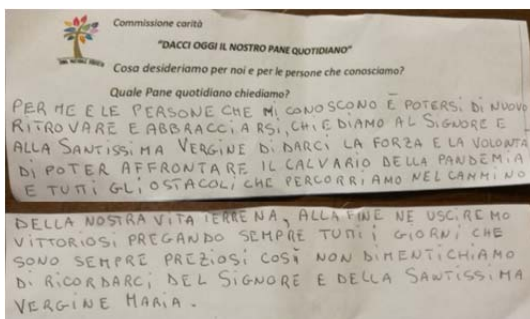 Commissione carità
"DACCI OGGI IL NOSTRO PANE QUOTIDIANO"
Cosa desideriamo per noi e per le persone che conosciamo?
Quale Pane quotidiano chiediamo?
PER ME E LE PERSONE CHE MI CONOSCONO È POTERSI DI NUOVO
RITROVARE E ABBRACCIARSI, CHIEDIAMO AL SIGNORE E
ALLA SANTISSIMA VERGINE DI DARCI LA FORZA E LA VOLONTÀ
DI POTER AFFRONTARE IL CALVARIO DELLA PANDEMIA
E TUTTI GLI OSTACOLI CHE PERCORRIAMO NEL CAMMINO
DELLA NOSTRA VITA TERRENA, ALLA FINE NE USCIREMO
VITTORIOSI PREGANDO SEMPRE TUTTI I GIORNI CHE
SONO SEMPRE PREZIOSI COSÌ NON DIMENTICHIAMO
DI RICORDARCI DEL SIGNORE E DELLA SANTISSIMA
VERGINE MARIA.